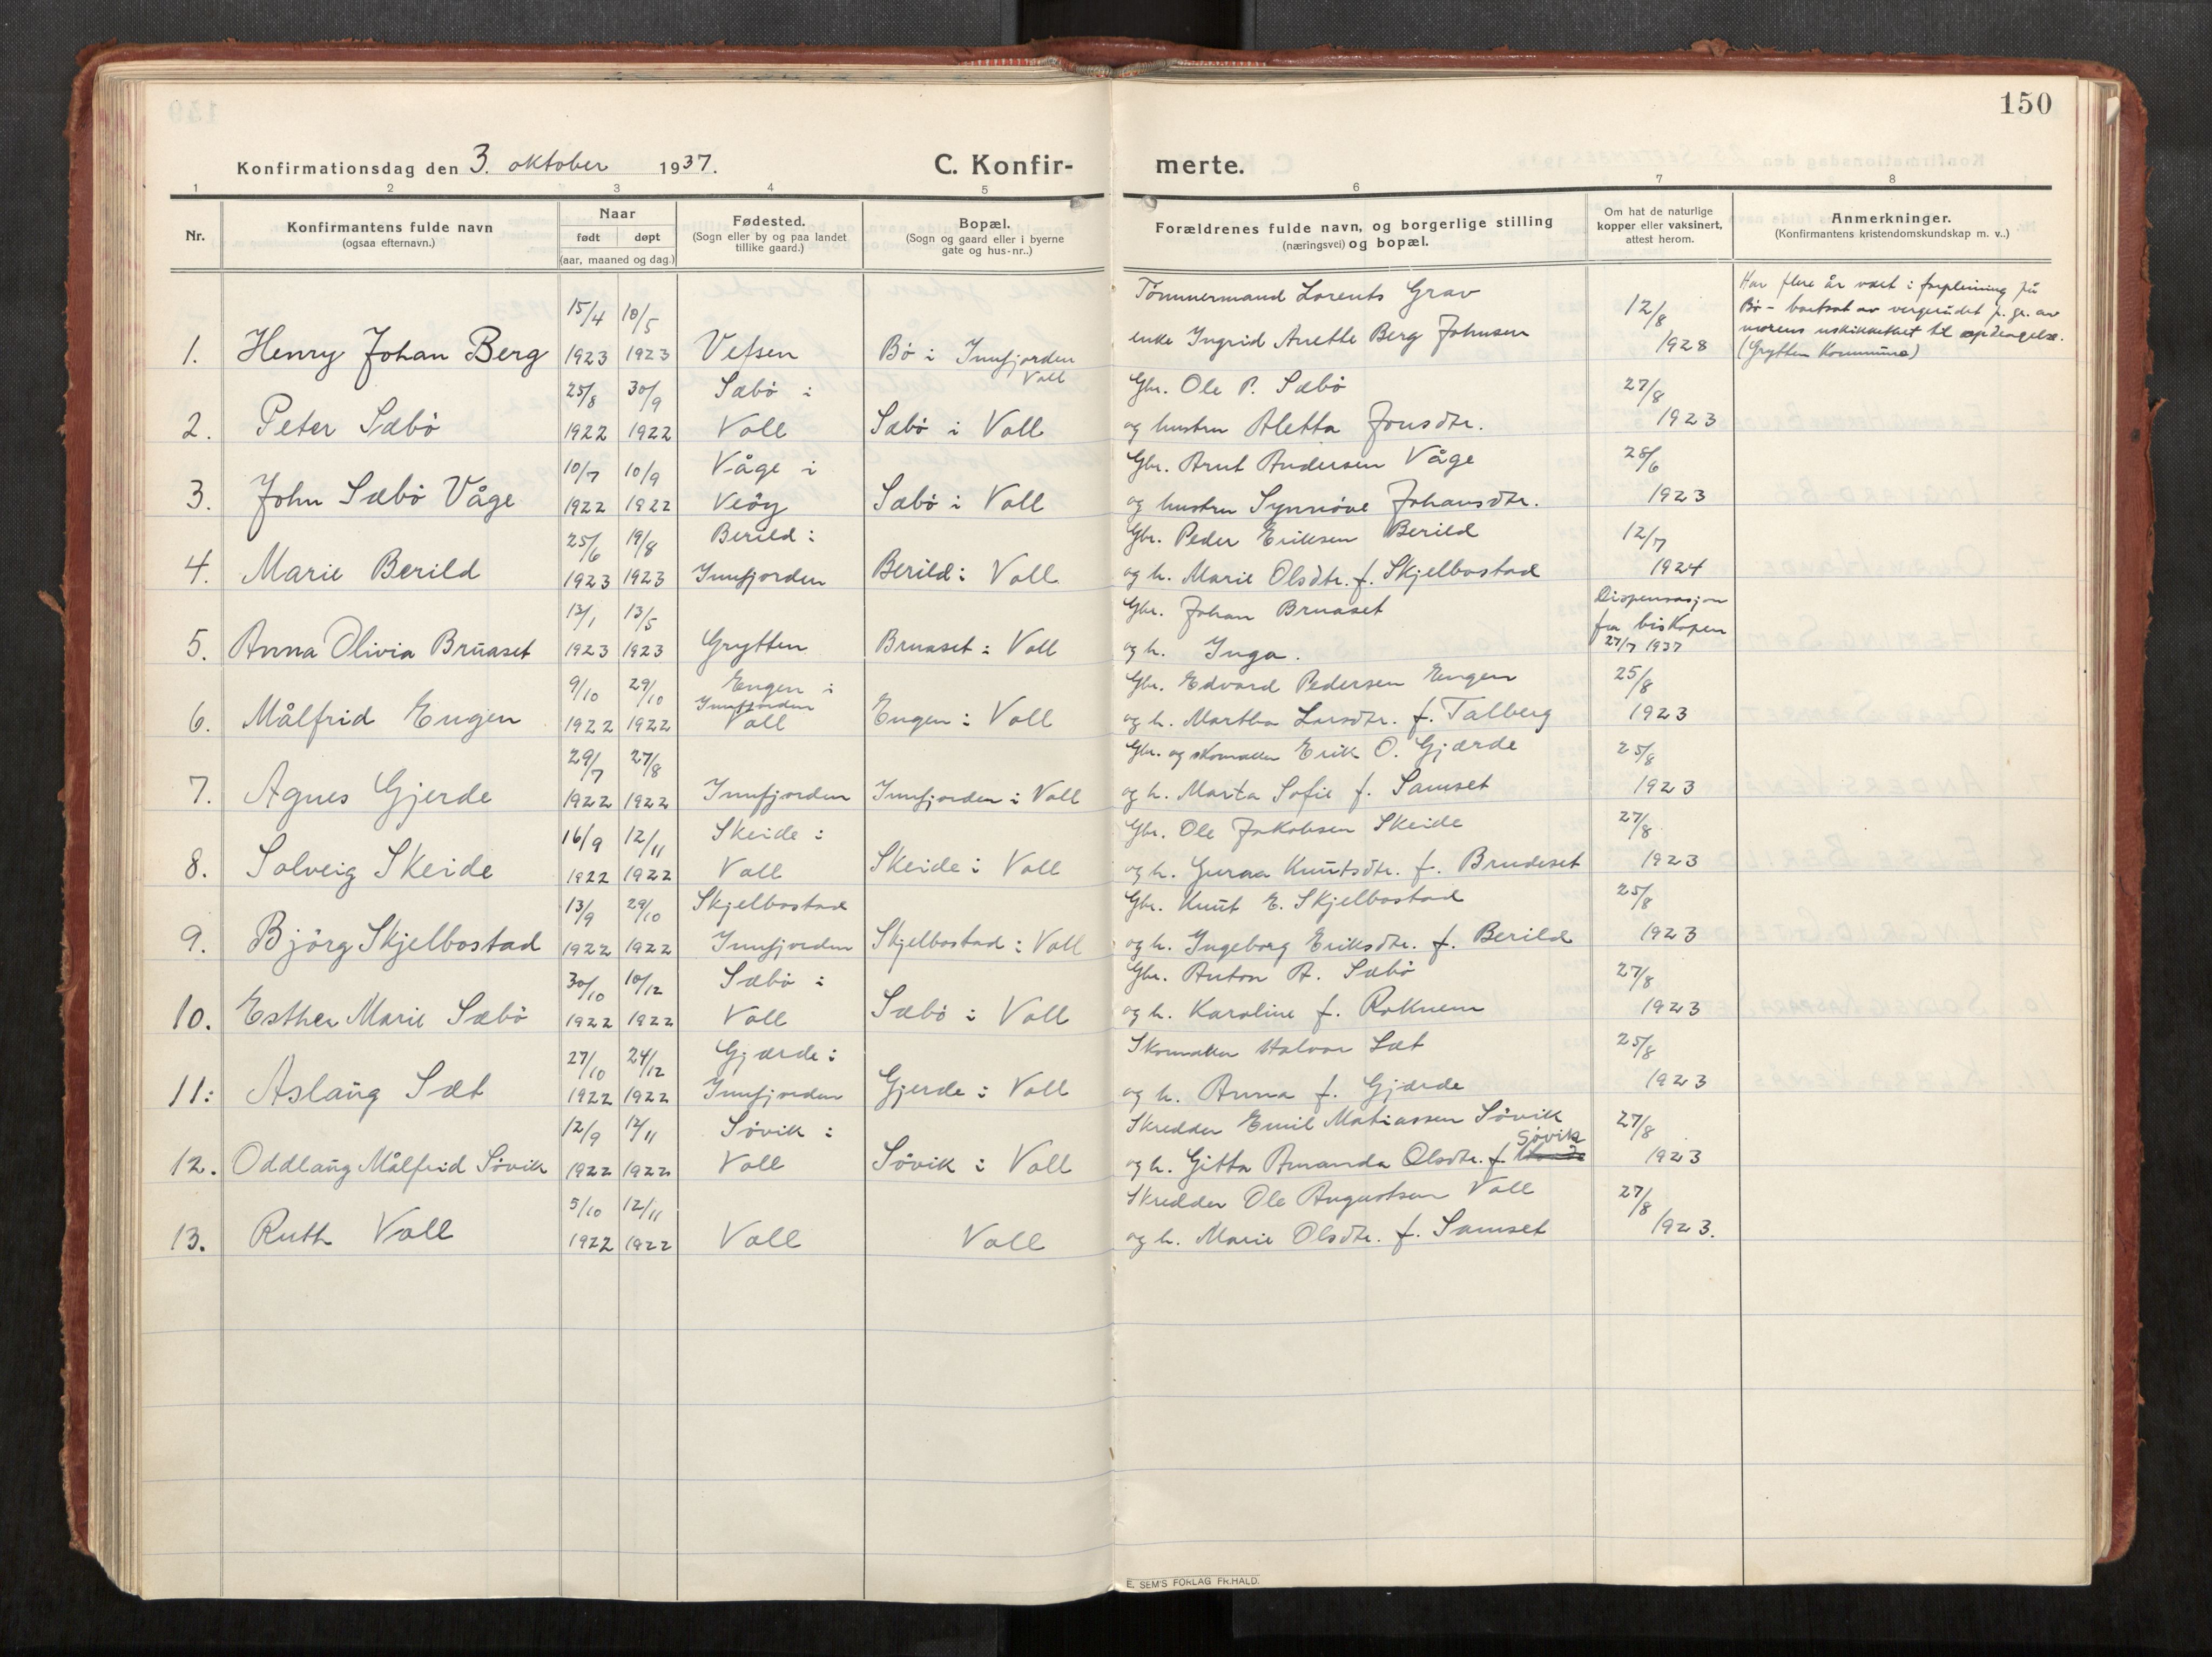 150
Konfirmationsdag den 3. oktober 1937.
C. Konfir-
merte.
1 2 3 4 5 6 7 8
Nr.
Konfirmantens fulde navn
(ogsaa efternavn.)
Naar
født døpt
(aar, maaned og dag.)
Fødested.
(Sogn eller by og paa landet
tillike gaard.)
Bopæl.
(Sogn og gaard eller i byerne
gate og hus-nr..)
Forældrenes fulde navn, og borgerlige stilling
(næringsvei) og bopæl.
Om hat de naturlige
kopper eller vaksinert,
attest herom.
Anmerkninger.
(Konfirmantens kristendomskundskap m. v..)
15/4 10/5 Tømmermand Lorents Grav 12/8
Har flere år vært i forpleining på
Bø - bortsat av vergerådet p. gr. av
morens uskikkethet til opdragelse.
(Grytten Kommune)
1. Henry Johan Berg 1923 1923 Vefsen Bø i Innfjorden enke Ingrid Anette Berg Johnsen 1928
Voll
25/8 30/9 Sæbø i Gbr. Ole P. Sæbø 27/8
2. Peter Sæbø 1922 1922 Voll Sæbø i Voll og hustru Aletta Jonsdtr. 1923
10/7 10/9 Våge i Gbr. Arnt Andersen Våge 28/6
3. John Sæbø Våge 1922 1922 Veöy Sæbø i Voll og hustru Synnöve Johansdtr. 1923
25/6 19/8 Berild i Gbr. Peder Eriksen Berild 12/7
4. Marie Berild 1923 1923 Innfjorden Berild i Voll og h. Marie Olsdtr. f. Skjelbostad 1924
13/1 13/5 Gbr. Johan Bruaset Dispensasjon
fra biskopen
5. Anna Olivia Bruaset 1923 1923 Grytten Bruaset i Voll og h. Inga. 27/7 1937
9/10 29/10 Engen i Gbr. Edvard Pedersen Engen 25/8
Innfjorden
6. Målfrid Engen 1922 1922 Voll Engen i Voll og h. Martha Larsdtr. f. Talberg 1923
29/7 27/8 Gbr. og skomaker Erik O. Gjærde 25/8
7. Agnes Gjerde 1922 1922 Innfjorden Innfjorden i Voll og h. Marta Sofie f. Samset 1923
16/9 12/11 Skeide i Gbr. Ole Jakobsen Skeide 27/8
8. Solveig Skeide 1922 1922 Voll Skeide i Voll og h. Guraa Knutsdtr. f. Brudeset 1923
13/9 29/10 Skjelbostad Gbr. Knut E. Skjelbostad 25/8
9. Björg Skjelbostad 1922 1922 Innfjorden Skjelbostad i Voll og h. Ingeborg Eriksdtr. f. Berild 1923
30/10 10/12 Sæbø i Gbr. Anton A. Sæbø 27/8
10. Esther Marie Sæbø 1922 1922 Voll Sæbø i Voll og h. Karoline f. Roknem 1923
27/10 24/12 Gjærde i Skomaker Halvor Sæt 25/8
11. Aslaug Sæt 1922 1922 Innfjorden Gjerde i Voll og h. Anna f. Gjærde 1923
12/9 12/11 Søvik i Skredder Emil Matiassen Søvik 27/8
Søvik
12. Oddlaug Målfrid Søvik 1922 1922 Voll Søvik i Voll og h. Gitta Amanda Olsdtr. f. 1923
5/10 12/11 Skredder Ole Augustsen Voll 27/8
13. Ruth Voll 1922 1922 Voll Voll og h. Marie Olsdtr. f. Samset 1923.
E. SEM'S FORLAG FR.HALD.